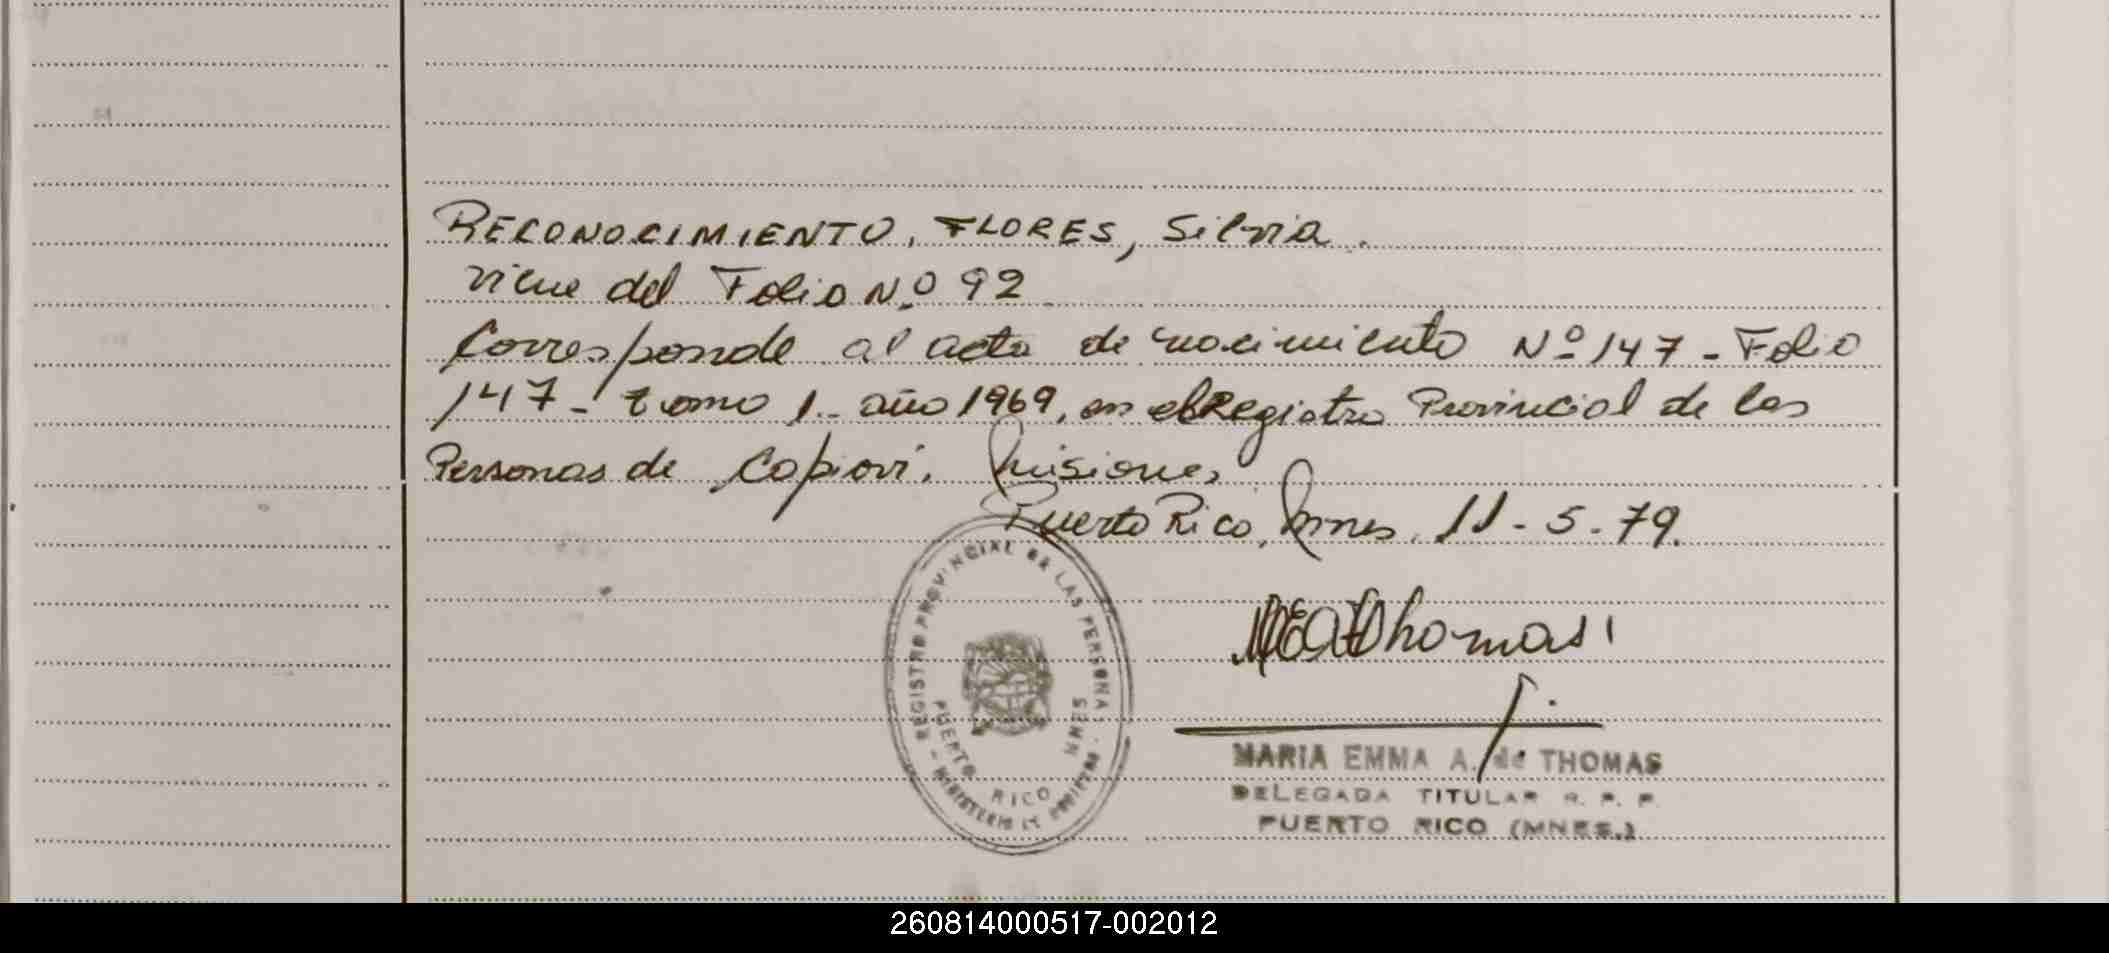 RECONOCIMIENTO, FLORES, Silvia.
viene del Folio N.º 92
Corresponde al acta de nacimiento Nº 147 - Folio
147 - tomo 1 - año 1969, en el Registro Provincial de las
Personas de Capiovi. Misiones
Puerto Rico, Mnes. 11-5-79.
REGISTRO PROVINCIAL DE LAS PERSONAS
PUERTO RICO MNES
MEAThomas
MARIA EMMA A. de THOMAS
DELEGADA TITULAR R. P. P.
PUERTO RICO (MNES.)
260814000517-002012